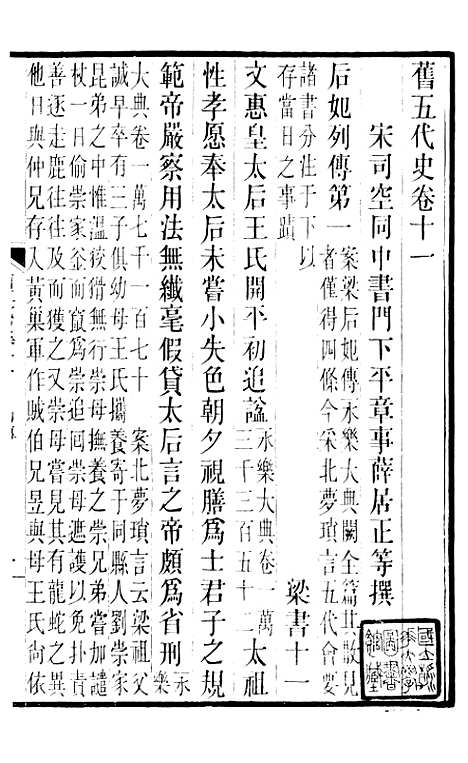 舊五代史卷十一
宋司空同中書門下平章事薛居正等撰
后妃列傳第一
案梁后妃傳永樂大典闕全篇其散見
者僅得四條今采北夢瑣言五代會要
諸書分注于下以
存當日之事蹟
梁書十一
文惠皇太后王氏開平初追諡
永樂大典卷一萬
三千三百五十二
太祖
性孝愿奉太后未嘗小失色朝夕視膳爲士君子之規
範帝嚴察用法無纖毫假貸太后言之帝頗爲省刑
永樂
大典卷一萬七千一百七十
案北夢瑣言云梁祖父
誠早卒有三子俱幼母王氏攜養寄于同縣人劉崇家
昆弟之中惟溫狡猾無行崇母撫養之崇兄弟嘗加譴
杖一日偷崇家釜而竄爲崇追回崇母遮護以免扑責
善逐走鹿往往及而獲之又崇母嘗見其有龍蛇之異
他日與仲兄存入黃巢軍作賊伯兄昱與母王氏尚依